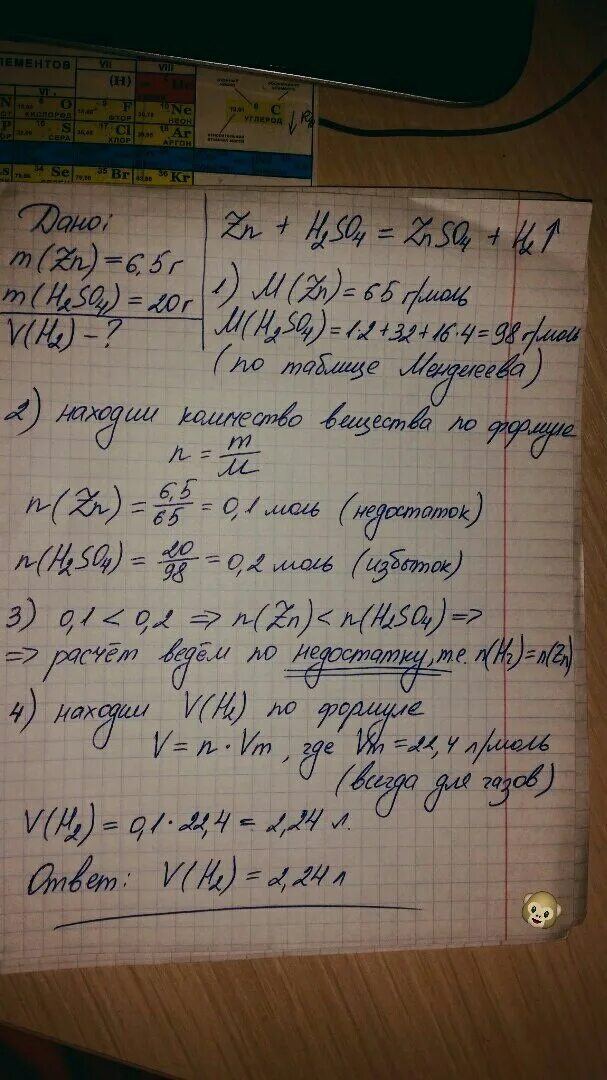 ЛЕМЕНТОВ
VII
VIII
VI
(H)
He
N
O
КИСЛОРОД
F
ФТОР
Ne
НЕОН
C
УГЛЕРОД
P
S
СЕРА
Cl
ХЛОР
Ar
АРГОН
Se
Br
Kr
Дано:
m(Zn)=6,5г
m(H₂SO₄)=20г
V(H₂)-?
Zn + H₂SO₄ = ZnSO₄ + H₂↑
1) M(Zn)=65 г/моль
M(H₂SO₄)=1·2+32+16·4=98 г/моль
(по таблице Менделеева)
2) находим количество вещества по формуле
n = m/M
n(Zn) = 6,5/65 = 0,1 моль (недостаток)
n(H₂SO₄) = 20/98 = 0,2 моль (избыток)
3) 0,1 < 0,2 => n(Zn) < n(H₂SO₄) =>
=> расчёт ведём по недостатку, т.е. n(H₂)=n(Zn)
4) находим V(H₂) по формуле
V = n · Vm, где Vm=22,4 л/моль
(всегда для газов)
V(H₂) = 0,1 · 22,4 = 2,24 л.
Ответ: V(H₂) = 2,24 л